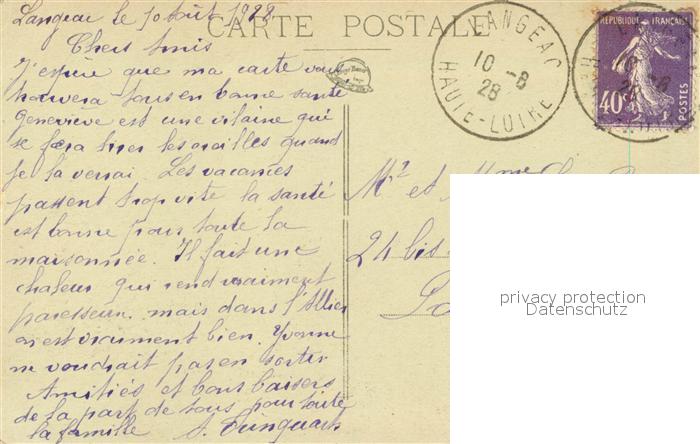 Langeac le 10 Août 1928
CARTE POSTALE
Chers Amis
J'espère que ma carte vous
trouvera tous en bonne santé
Geneviève est une vilaine qui
se fera tirer les oreilles quand
je la verrai. Les vacances
passent trop vite la santé
est bonne pour toute la
maisonnée. Il fait une
chaleur qui rend vraiment
paresseux mais dans l'Allier
on est vraiment bien. Yvonne
ne voudrait pas en sortir
Amitiés et bons baisers
de la part de tous pour toute
la famille
LANGEAC
10 -8
28
HAUTE-LOIRE
REPUBLIQUE FRANÇAISE
40c
POSTES
10 -8
28
Mr et Mme
24 bis
privacy protection
Datenschutz